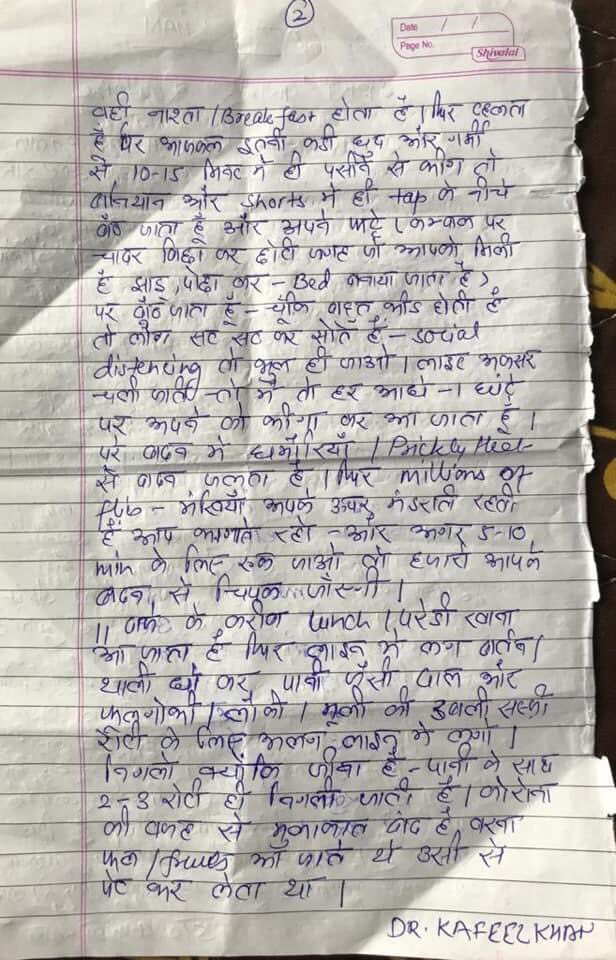 2
Date / /
Page No.
Shivalal
वही नाश्ता / Breakfast होता है। फिर टहलता
है पर आजकल इतनी कड़ी धूप और गर्मी
से 10-15 मिनट में ही पसीने से भीग तो
बनियान और shorts में ही tap के नीचे
बैठ जाता हूँ और अपने फट्टे (कम्बल पर
चादर बिछा कर छोटी जगह जो आपको मिली
है झाड़ू, पोछा कर - Bed बनाया जाता है)
पर बैठ जाता हूँ - चूंकि बहुत भीड़ होती है
तो लोग सट सट कर सोते हैं - social
distencing तो भूल ही जाओ। लाइट अक्सर
चली जाती - तो मैं तो हर आधे - 1 घंटे
पर अपने को भीगा कर आ जाता हूँ।
पूरे बदन में घमौरियाँ / Prickly Heat
से बदन जलता है। फिर millions of
मक्खियाँ आपके ऊपर मंडराती रहती
हैं आप भगाते रहो - और अगर 5-10
min के लिए रुक जाओ तो हजारों आपके
बदन से चिपक जाएँगी।
11 बजे के करीब Lunch / खाना
आ जाता है फिर लाइन में लग बर्तन /
थाली धो कर पानी जैसी दाल और
फूलगोभी / लौकी / मूली की उबली सब्जी
रोटी के लिए अलग लाइन में लगो।
निगलो क्योंकि जीना है - पानी के साथ
2-3 रोटी ही निगली जाती है। कोरोना
की वजह से मुलाकात बंद है वरना
फल / fruits आ जाते थे उसी से
पेट भर लेता था।
DR. KAFEEL KHAN